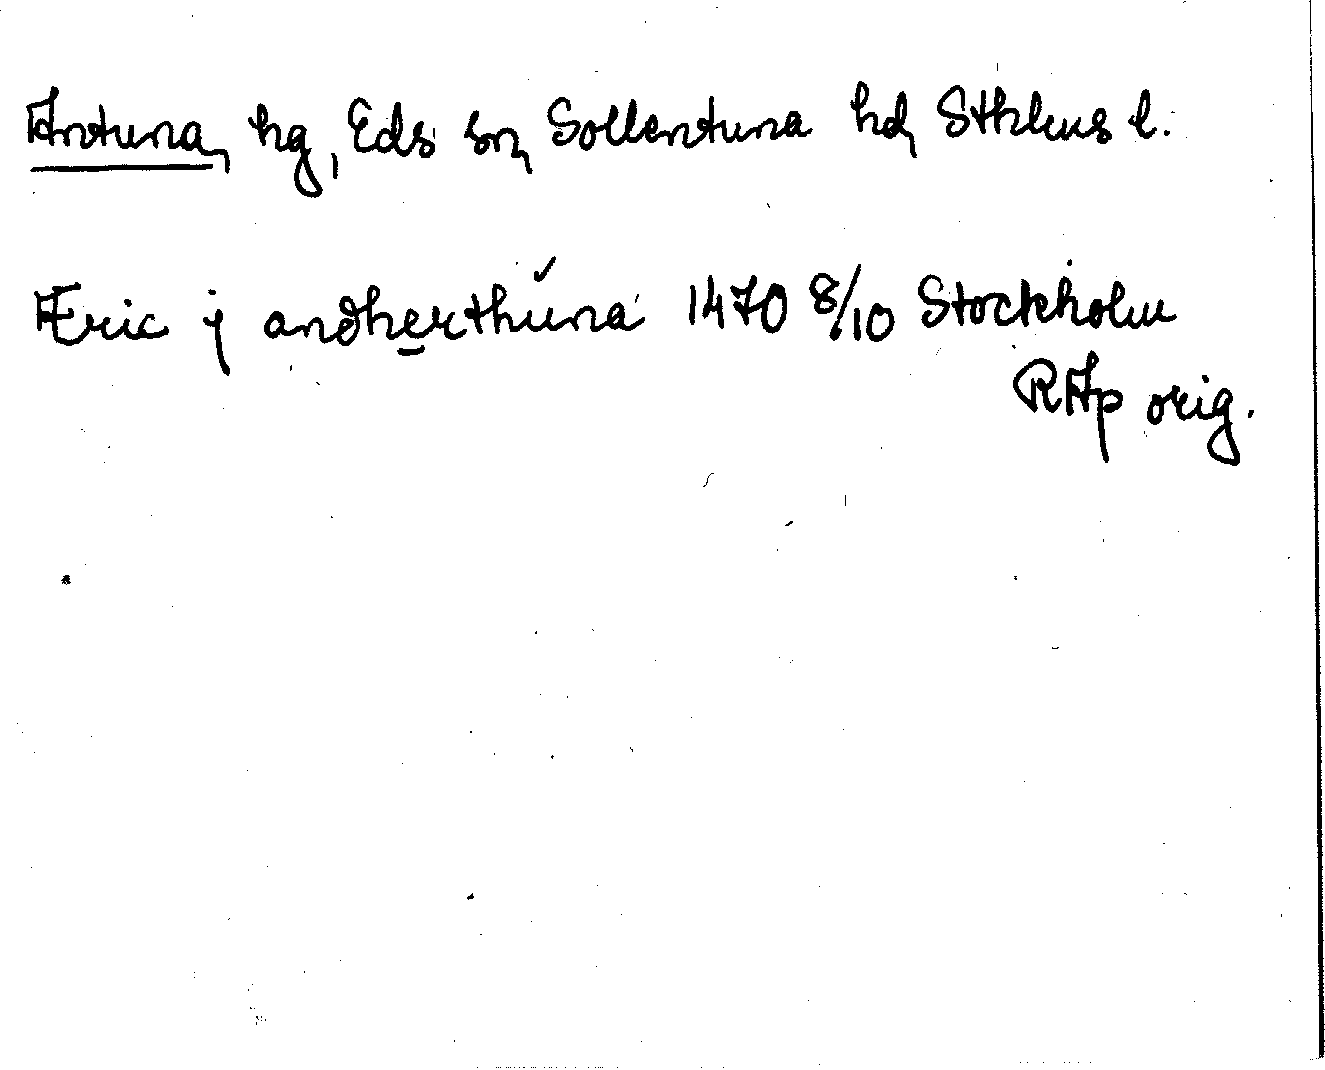 Antuna, hg, Eds sn, Sollentuna hd, Sthlms l.
Æric j andherthúna 1470 8/10 Stockholm
RAp orig.